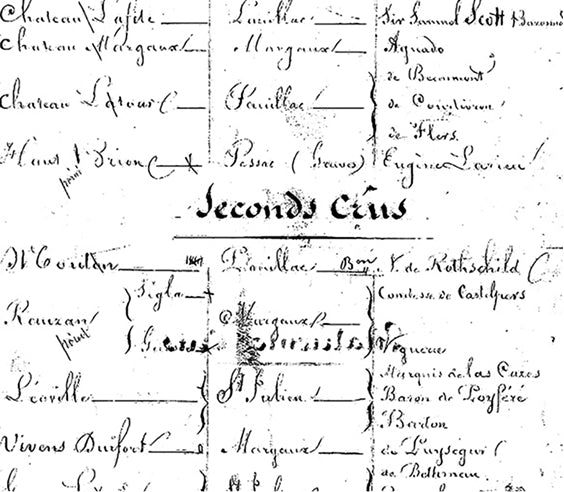 Chateau Lafite Pauillac Sir Samuel Scott Baronnet
Chateau Margaux Margaux Aguado
de Beaumont
Chateau Latour Pauillac de Courtivron
de Flers.
Haut Brion Pessac (Graves) Eugène Larieu
Seconds Crûs
Mouton Pauillac Bon. de Rothschild
Segla Comtesse de Castelpers
Rauzan Margaux
Viguerie
Marquis de las Cazes
Léoville St Julien Baron de Poyféré
Barton
Vivens Durfort Margaux de Puysegur
de Bethmann